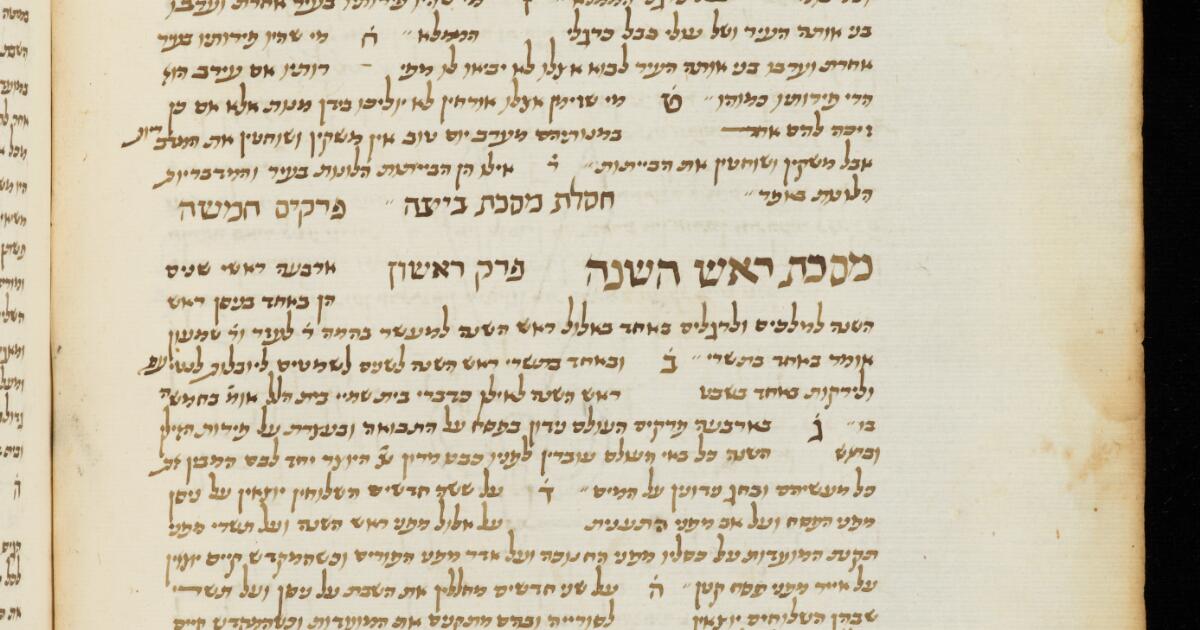 בני אותה העיר ושל עולי בבל כרגלי הממלא ח מי שהיו פירותיו בעיר
אחרת ועירבו בני אותה העיר לבוא אצלו לא יביאו לו מפי רותיו אם עירב הוא
הרי פירותיו כמוהו ט מי שזימן אצלו אורחין לא יוליכו בידן מנות אלא אם כן
זיכה להם אחר במנותיהם מערב יום טוב אין משקין ושוחטין את המדבריות
אבל משקין ושוחטין את הבייתות י אילו הן הבייתות הלנות בעיר והמדבריות
הלנות באפר
חסלת מסכת ביצה פרקים חמשה
מסכת ראש השנה פרק ראשון ארבעה ראשי שנים
הן באחד בניסן ראש
השנה למלכים ולרגלים באחד באלול ראש השנה למעשר בהמה ר' לעזר ור' שמעון
אומר באחד בתשרי ב ובאחד בתשרי ראש השנה לשנים לשמטים ליובלות לנטיעה
ולירקות באחד בשבט ראש השנה לאילן כדברי בית שמיי בית הלל אומ' בחמשה
בו ג בארבעה פרקים העולם נידון בפסח על התבואה ובעצרת על פירות האילן
ובראש השנה כל באי העולם עוברין לפניו כבנומרון שנ' היוצר יחד לבם המבין אל
כל מעשיהם ובחג נידונין על המים ד על ששה חדשים השלוחין יוצאין על ניסן
מפני הפסח ועל אב מפני התענית על אלול מפני ראש השנה ועל תשרי מפני
תקנת המועדות על כסליו מפני החנוכה ועל אדר מפני הפורים וכשהמקדש קיים יוצאין
על אייר מפני פסח קטן ה על שני חדשים מחללין את השבת על ניסן ועל תשרי
שבהן השלוחים יוצאין לסורייה ובהם מתקנים את המועדות וכשהמקדש קיים